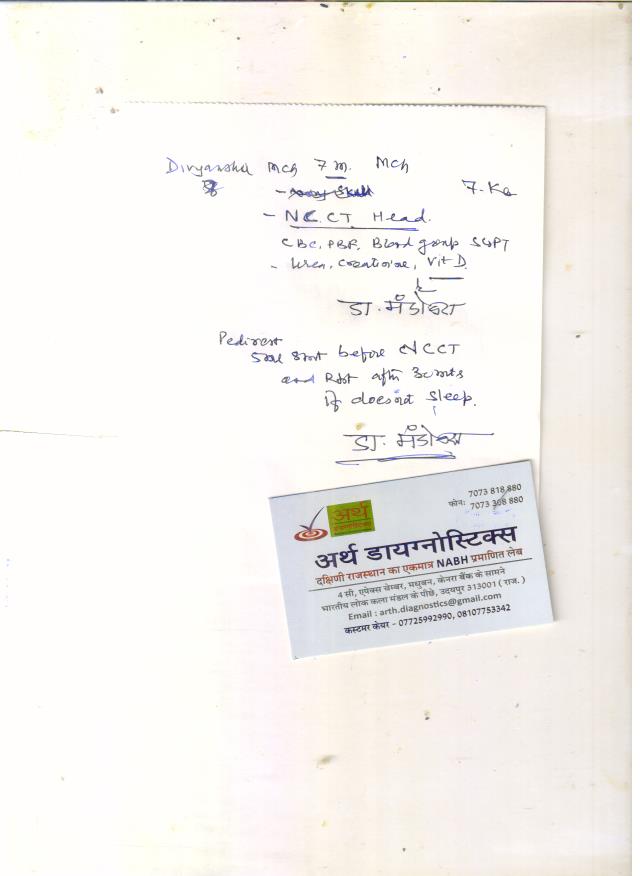 Divyanshu mch 7 m. mch
7. Kg
- NCCT Head.
CBC, PBF, Blood group SGPT
- Urea, creatinine, Vit D.
डा.
before NCCT
and after
if doesnot sleep.
डा.
7073 818 880
फोन: 7073 308 880
अर्थ
डायग्नोस्टिक्स
अर्थ डायग्नोस्टिक्स
दक्षिणी राजस्थान का एकमात्र NABH प्रमाणित लेब
4 सी, एपेक्स चेम्बर, मधुबन, केनरा बैंक के सामने
भारतीय लोक कला मंडल के पीछे, उदयपुर 313001 ( राज. )
Email : arth.diagnostics@gmail.com
कस्टमर केयर - 07725992990, 08107753342